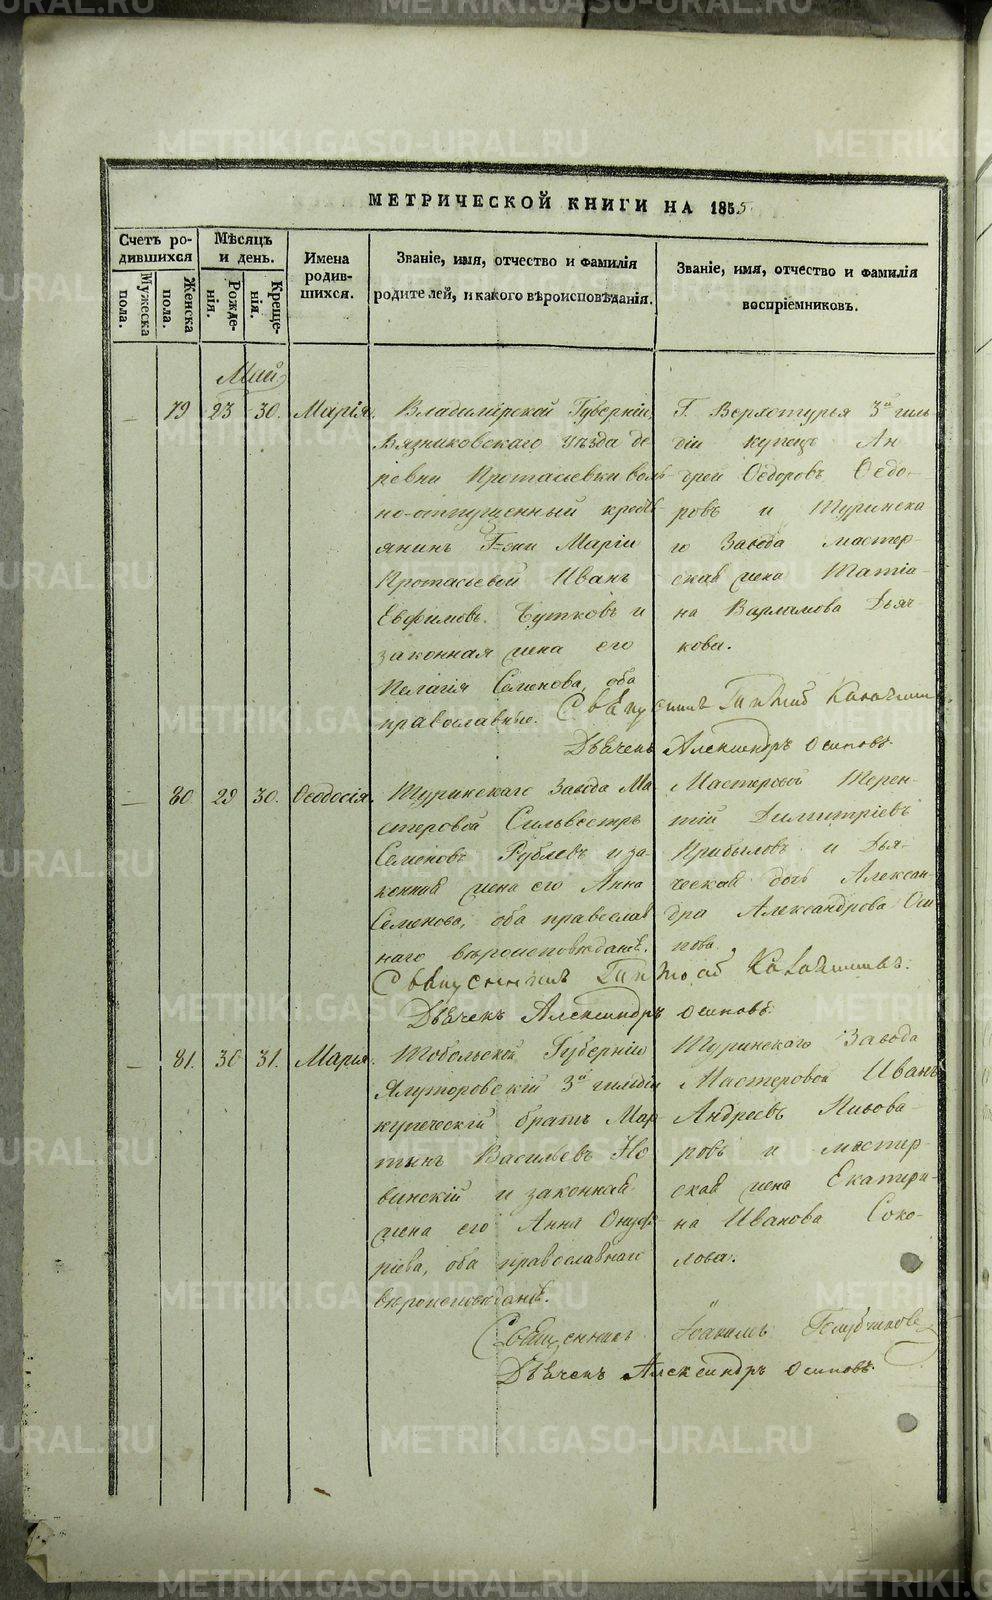 МЕТРИЧЕСКОЙ КНИГИ НА 1855
Счетъ ро-
дившихся
Мѣсяцъ
и день.
Имена
родив-
шихся.
Званіе, имя, отчество и фамилія
родителей, и какого вѣроисповѣданія.
Званіе, имя, отчество и фамилія
воспріемниковъ.
Мужеска
пола.
Женска
пола.
Рожде-
нія.
Креще-
нія.
Май
79 23 30. Марія.
Владимірской Губерніи
Вязниковскаго уѣзда де
ревни Протасьевки воль
но-отпущенный кресть
янинъ Г-жи Маріи
Протасьевой Иванъ
Евфимовъ Бутковъ и
законная жена его
Пелагія Семенова, оба
православные.
Г. Верхотурья 3й гиль
діи купецъ Ан
дрей Ѳедоровъ Ѳедо-
ровъ и Туринска
го Завода мастер-
ская жена Татіа-
на Варламова Дьяч-
кова.
Священникъ
Дьячекъ Александръ Осиповъ.
80 29 30. Ѳеодосія.
Туринскаго Завода Ма
стеровой Сильвестръ
Семеновъ Рублевъ и за-
конная жена его Анна
Семенова, оба православ
наго вѣроисповѣданія.
Мастеровой Терен-
тій Димитріевъ
Прибыловъ и Дья-
ческая дочь Алексан-
дра Александрова Оси
пова.
Священникъ
Дьячекъ Александръ Осиповъ.
81. 30 31. Марія.
Тобольской Губерніи
Ялуторовскій 3й гильдіи
купеческій братъ Мар
тынъ Васильевъ Но
винскій и законная
жена его Анна Онуф-
ріева, оба православнаго
вѣроисповѣданія.
Туринскаго Завода
Мастеровой Иванъ
Андреевъ Пивова-
ровъ и мастер-
ская жена Екатери-
на Иванова Соко-
лова.
Священникъ Іоакимъ Голубчиковъ
Дьячекъ Александръ Осиповъ.
METRIKI.GASO-URAL.RU